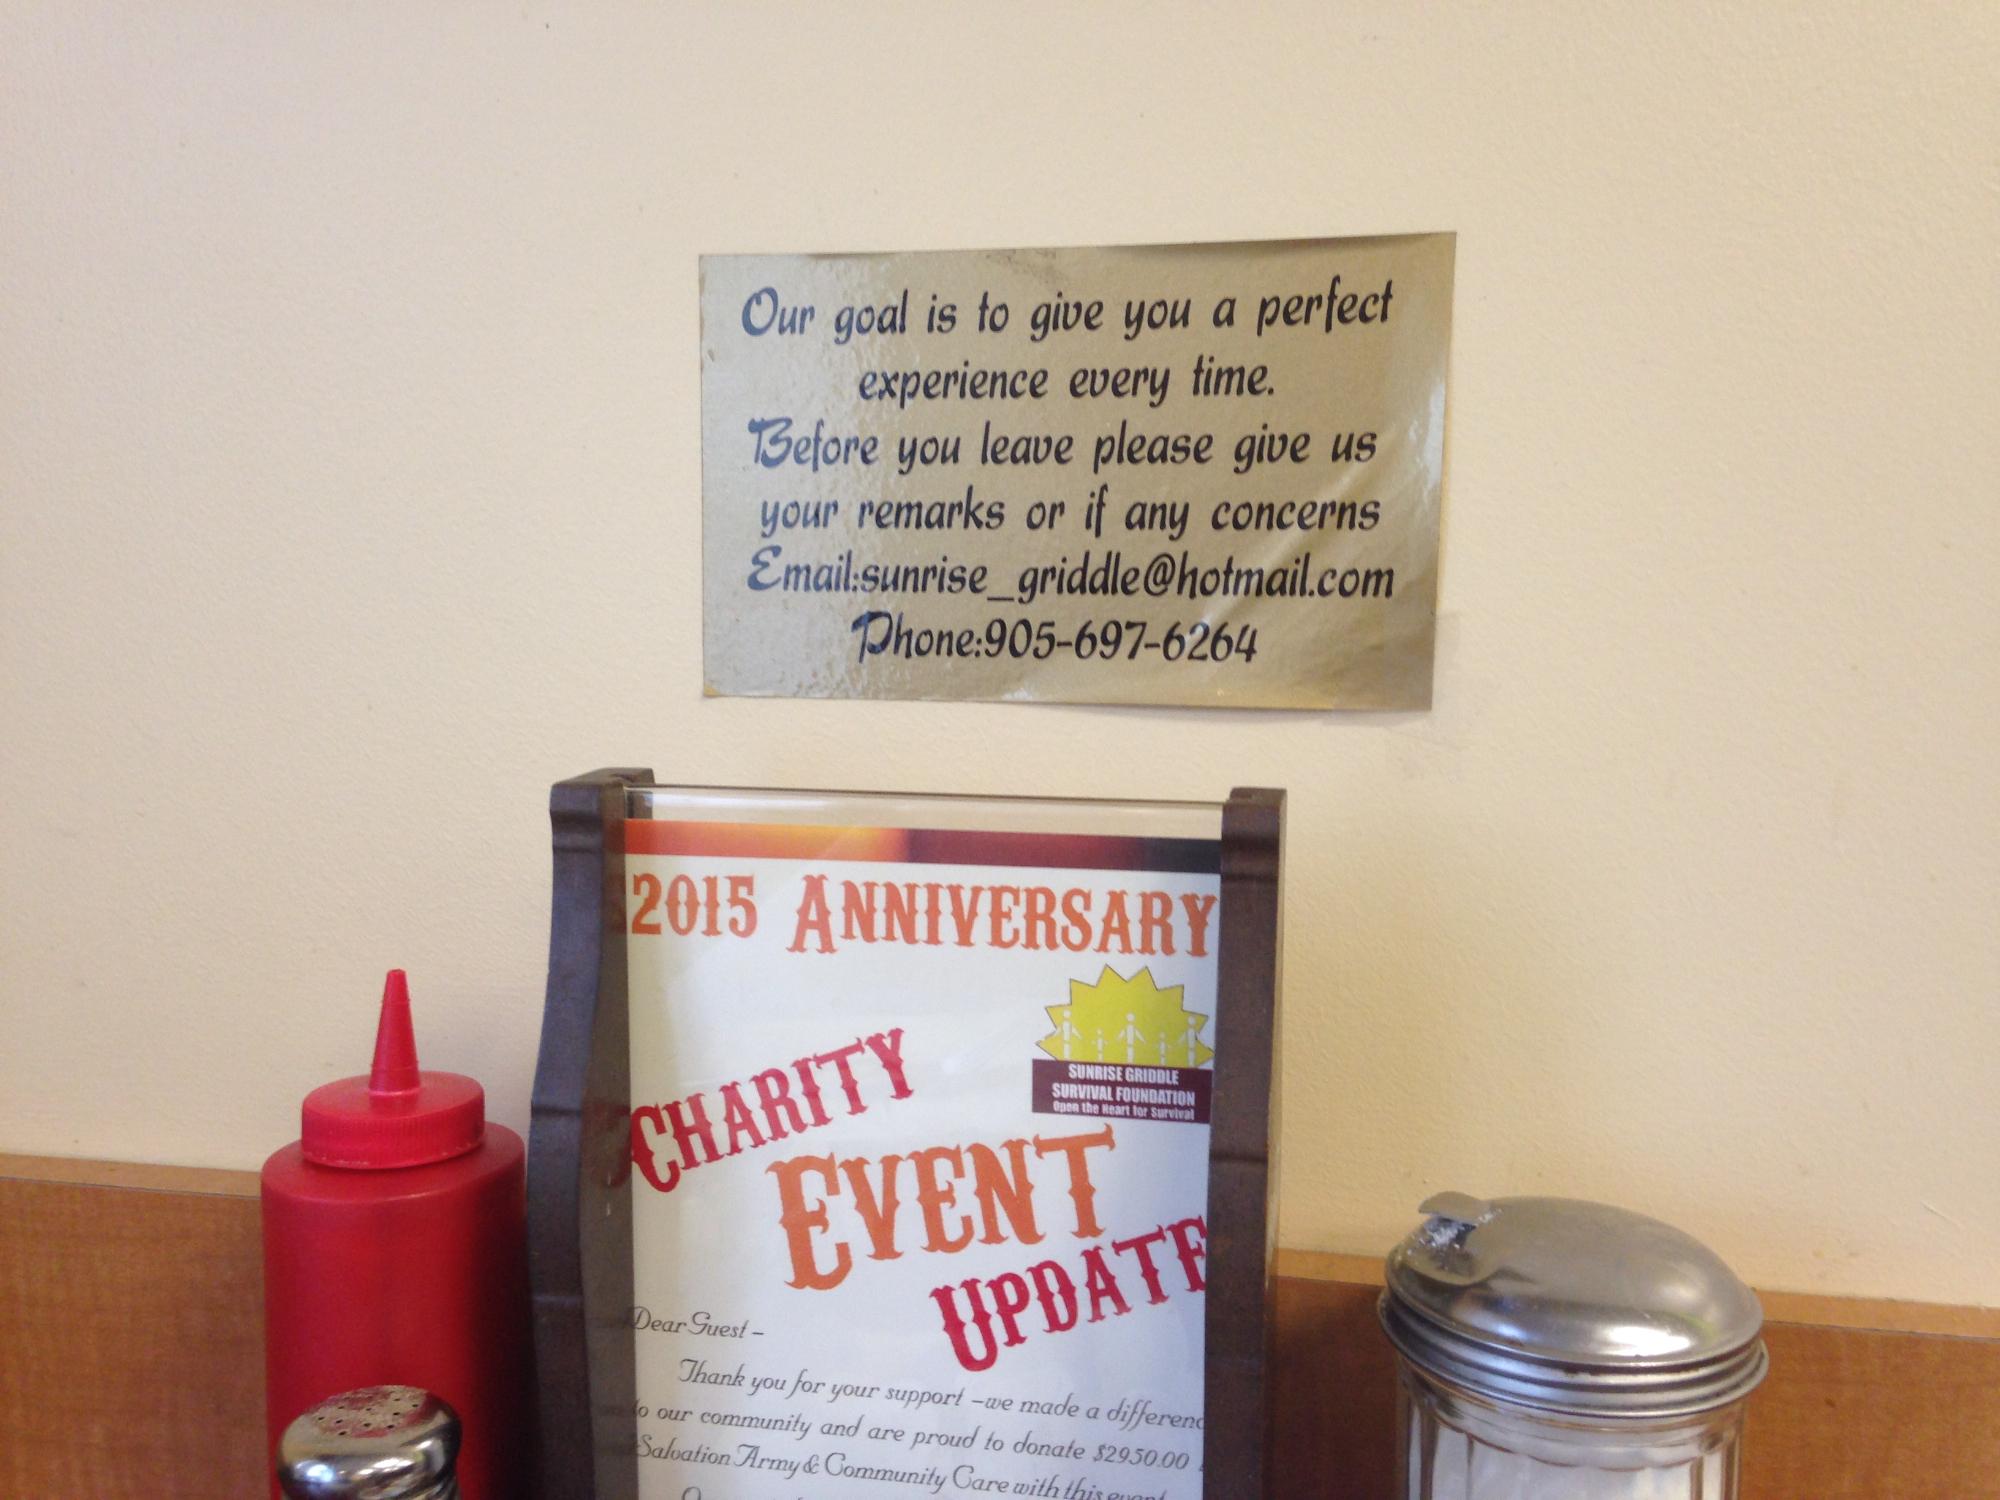 Our goal is to give you a perfect
experience every time.
Before you leave please give us
your remarks or if any concerns
Email:sunrise_griddle@hotmail.com
Phone:905-697-6264
2015 ANNIVERSARY
SUNRISE GRIDDLE
SURVIVAL FOUNDATION
Open the Heart for Survival
CHARITY
EVENT
UPDATE
Dear Guest –
Thank you for your support –we made a differenc
to our community and are proud to donate $2950.00
Salvation Army & Community Care with this event